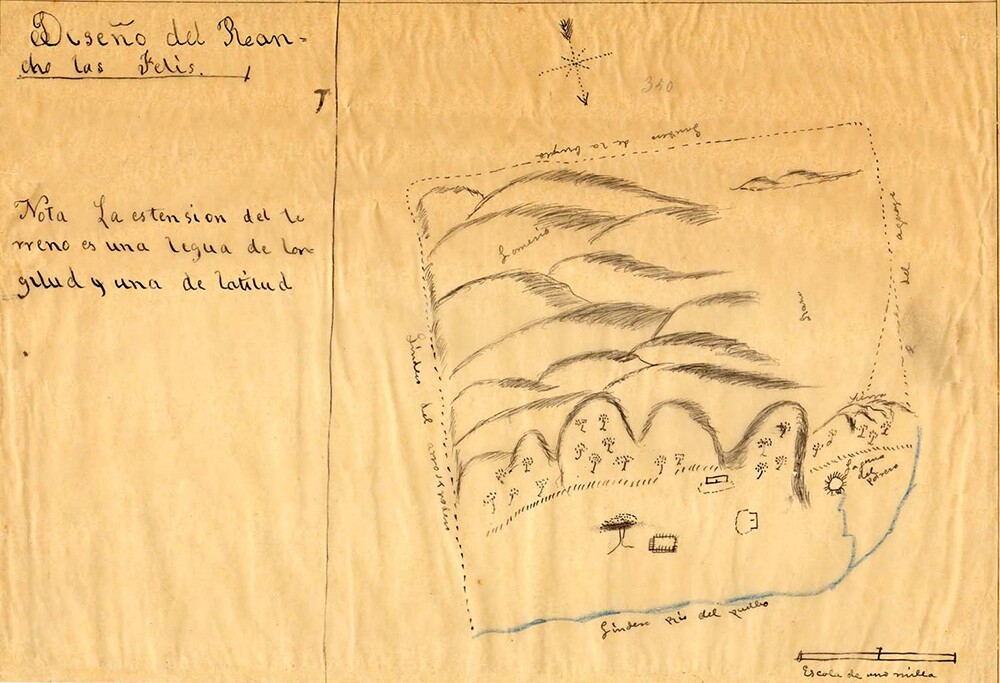 Diseño del Rean=
cho las Felis.
Nota La estension del te
rreno es una legua de lon-
gitud y una de latitud
350
Lindero de la
Lomerio
Llano
Lindero del
Sierra
Laguna
del
Potrero
Lindero rio del pueblo
Escala de una milla